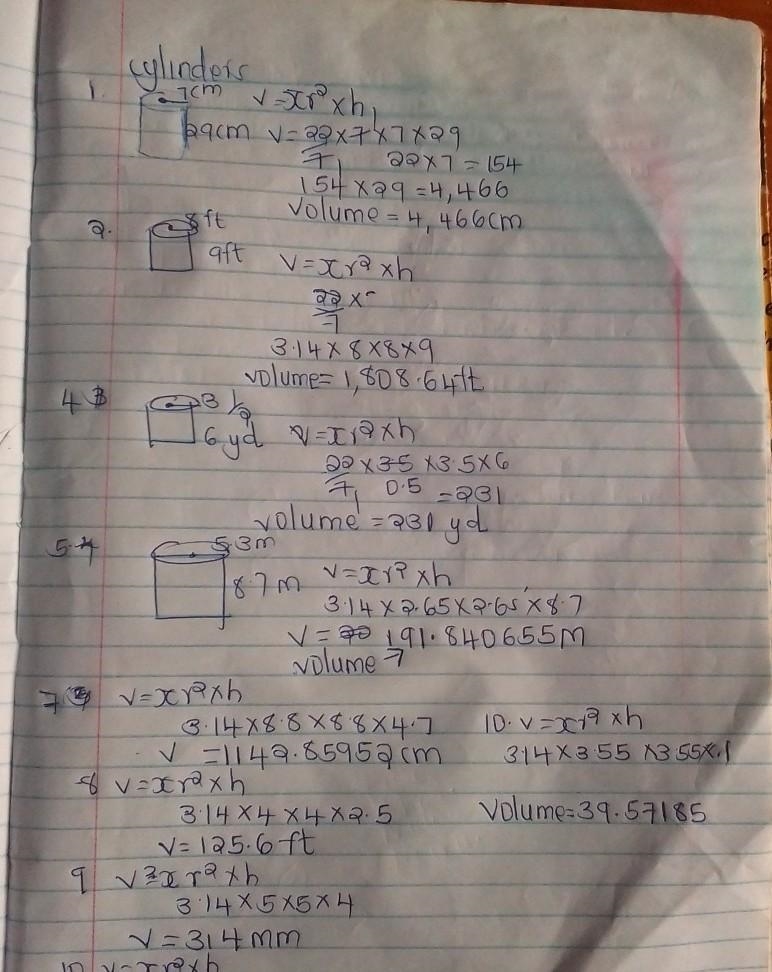 cylinders
1. 7cm V=πr²×h
29cm V=22/7×7×7×29
22×7=154
154×29=4,466
Volume=4,466cm
2. 8ft
9ft V=πr²×h
22/7×
3.14×8×8×9
volume=1,808.64ft
4 3 1/2
6yd V=πr²×h
22/7×3.5×3.5×6
0.5 =231
volume=231yd
5. 5.3m
8.7m V=πr²×h
3.14×2.65×2.65×8.7
V=191.840655m
volume
7 V=πr²×h
3.14×8.8×8.8×4.7
V=1142.85952cm
8 V=πr²×h
3.14×4×4×2.5
V=125.6ft
9 V=πr²×h
3.14×5×5×4
V=314mm
10. V=πr²×h
3.14×3.55×3.55×.1
Volume=39.57185
10 V=πr²×h